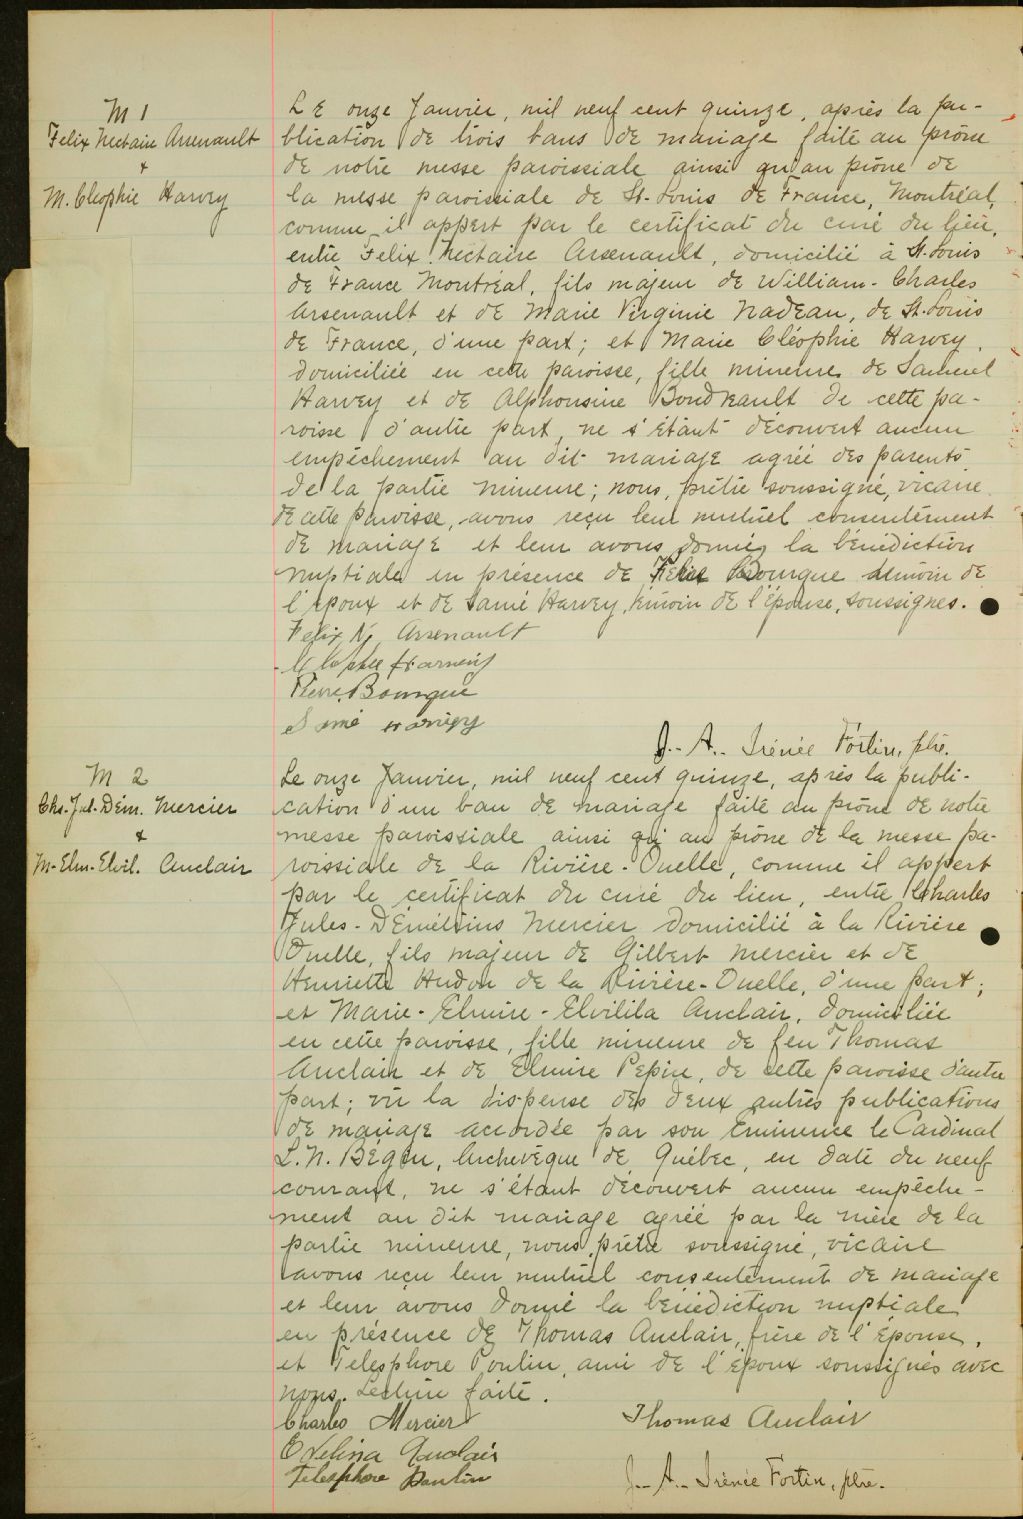 M 1
Felix Nectaire Arsenault
+
M. Cléophie Harvey
LE onze Janvier, mil neuf cent quinze, après la pu-
blication de trois bans de mariage faite au prône
de notre messe paroissiale ainsi qu'au prône de
la messe paroissiale de St-Louis de France, Montréal,
comme il appert par le certificat du curé du lieu,
entre Felix Nectaire Arsenault, domicilié à St-Louis
de France Montréal, fils majeur de William-Charles
Arsenault et de Marie Virginie Nadeau, de St-Louis
de France, d'une part; et Marie Cléophie Harvey,
domiciliée en cette paroisse, fille mineure de Samuel
Harvey et de Alphonsine Boudreault de cette pa-
roisse d'autre part, ne s'étant découvert aucun
empêchement au dit mariage agréé des parents
de la partie mineure; nous, prêtre soussigné, vicaire
de cette paroisse, avons reçu leur mutuel consentement
de mariage et leur avons donné la bénédiction
nuptiale en présence de Bourque témoin de
l'époux et de Samé Harvey, témoin de l'épouse, soussignés.
Felix N. Arsenault
Pierre Bourque
Samé
J.-A.-Irénée Fortin, ptre.
M 2
Chs.-Jul.-Dém. Mercier
+
M-Elm.-Elvil. Auclair
Le onze Janvier, mil neuf cent quinze, après la publi-
cation d'un ban de mariage faite au prône de notre
messe paroissiale ainsi qu'au prône de la messe pa-
roissiale de la Rivière-Ouelle, comme il appert
par le certificat du curé du lieu, entre Charles
Jules-Démétrius Mercier domicilié à la Rivière
Ouelle, fils majeur de Gilbert Mercier et de
Henriette Hudon de la Rivière-Ouelle, d'une part;
et Marie-Elmire-Elvilila Auclair, domiciliée
en cette paroisse, fille mineure de feu Thomas
Auclair et de Elmire Pepin, de cette paroisse d'autre
part; vu la dispense des deux autres publications
de mariage accordée par son Eminence le Cardinal
L. N. Bégin, Archevêque de Québec, en date du neuf
courant, ne s'étant découvert aucun empêche-
ment au dit mariage agréé par la mère de la
partie mineure, nous, prêtre soussigné, vicaire
avons reçu leur mutuel consentement de mariage
et leur avons donné la bénédiction nuptiale
en présence de Thomas Auclair, frère de l'épouse,
et Telesphore Poulin, ami de l'époux soussignés avec
nous. Lecture faite.
Charles Mercier
Thomas Auclair
Evelina Auclair
Telesphore Poulin
J.-A.-Irénée Fortin, ptre.